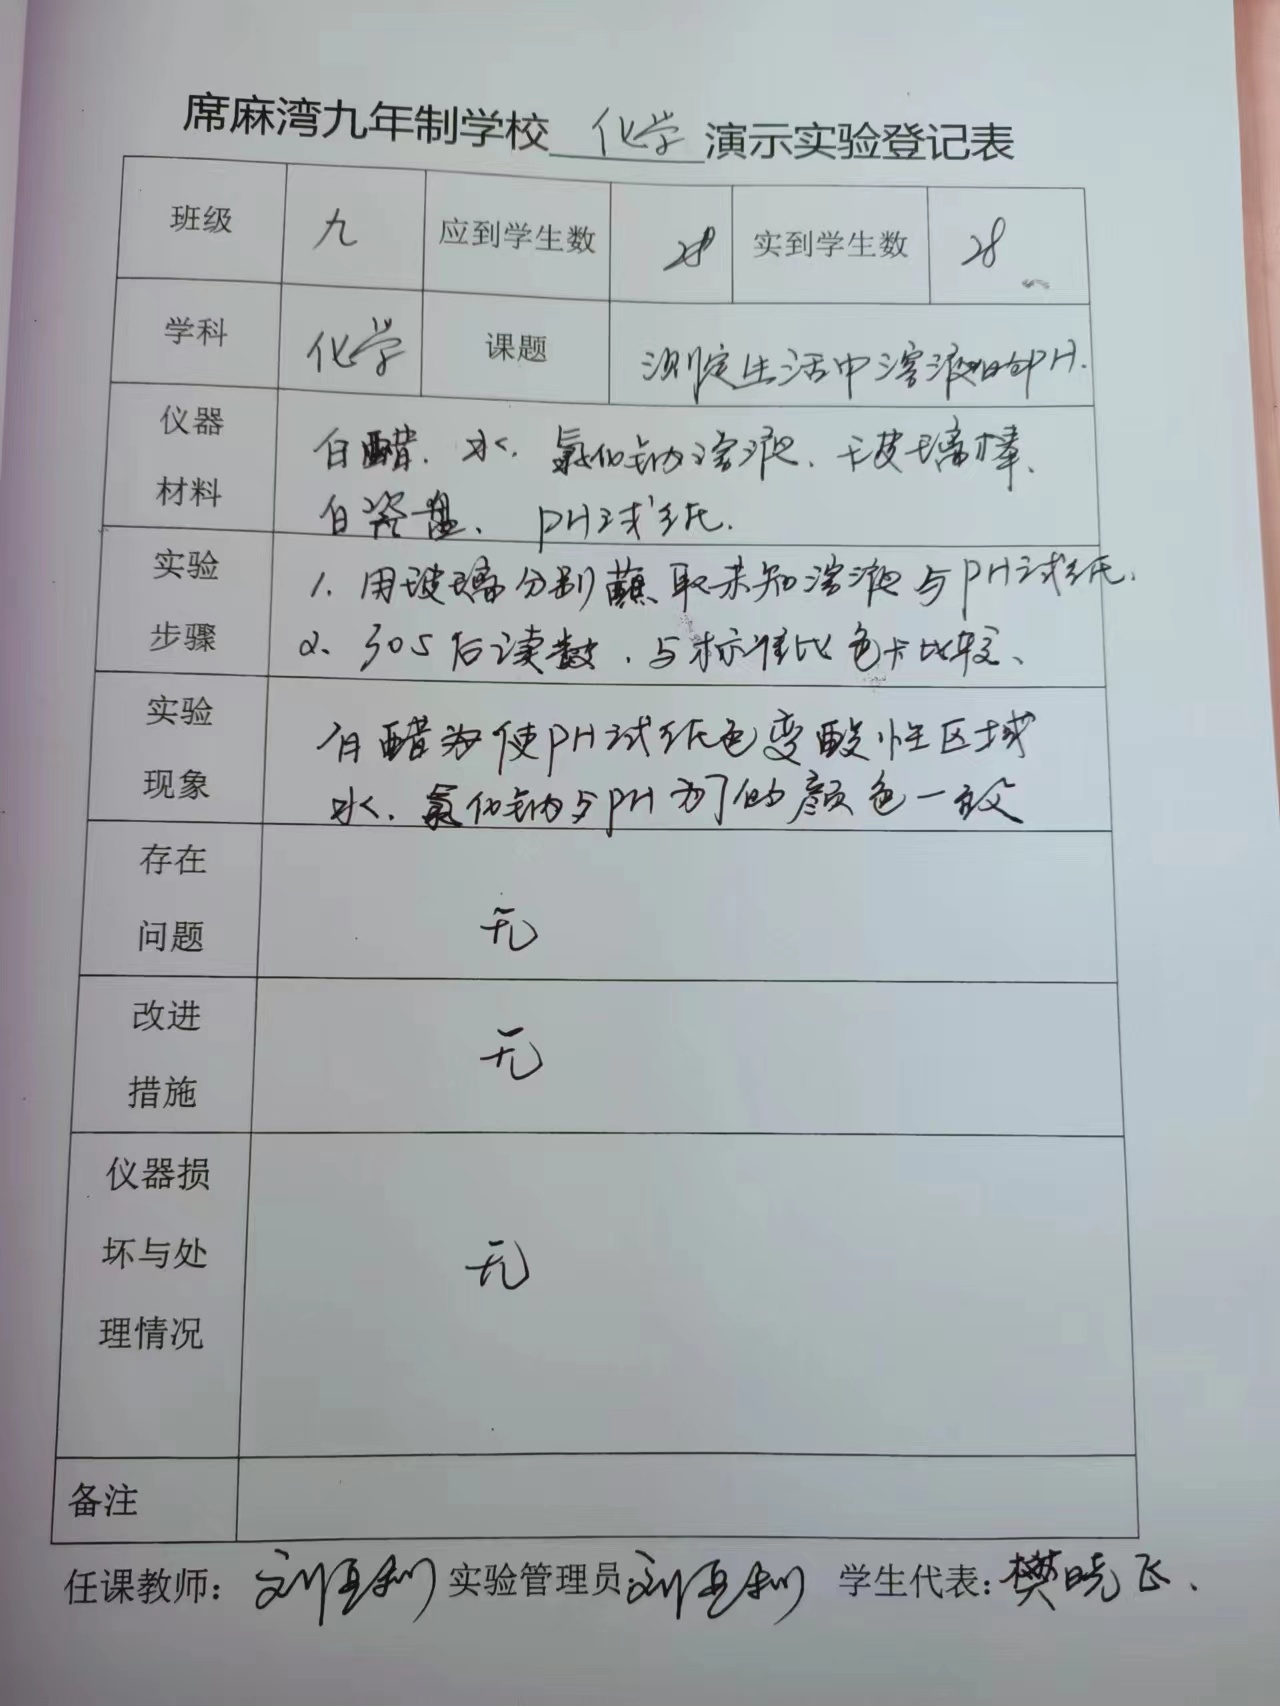 席麻湾九年制学校 化学 演示实验登记表
班级 九 应到学生数 28 实到学生数 28
学科 化学 课题 测定生活中溶液的PH.
仪器 白醋、水、氯化钠溶液、玻璃棒、
材料 白瓷盘、PH试纸.
实验 1、用玻璃分别蘸取未知溶液与PH试纸.
步骤 2、30S后读数、与标准比色卡比较、
实验 白醋为使PH试纸色变酸性区域
现象 水、氯化钠与PH为7的颜色一致
存在
问题 无
改进
措施 无
仪器损
坏与处 无
理情况
备注
任课教师: 实验管理员: 学生代表: 樊晓飞、